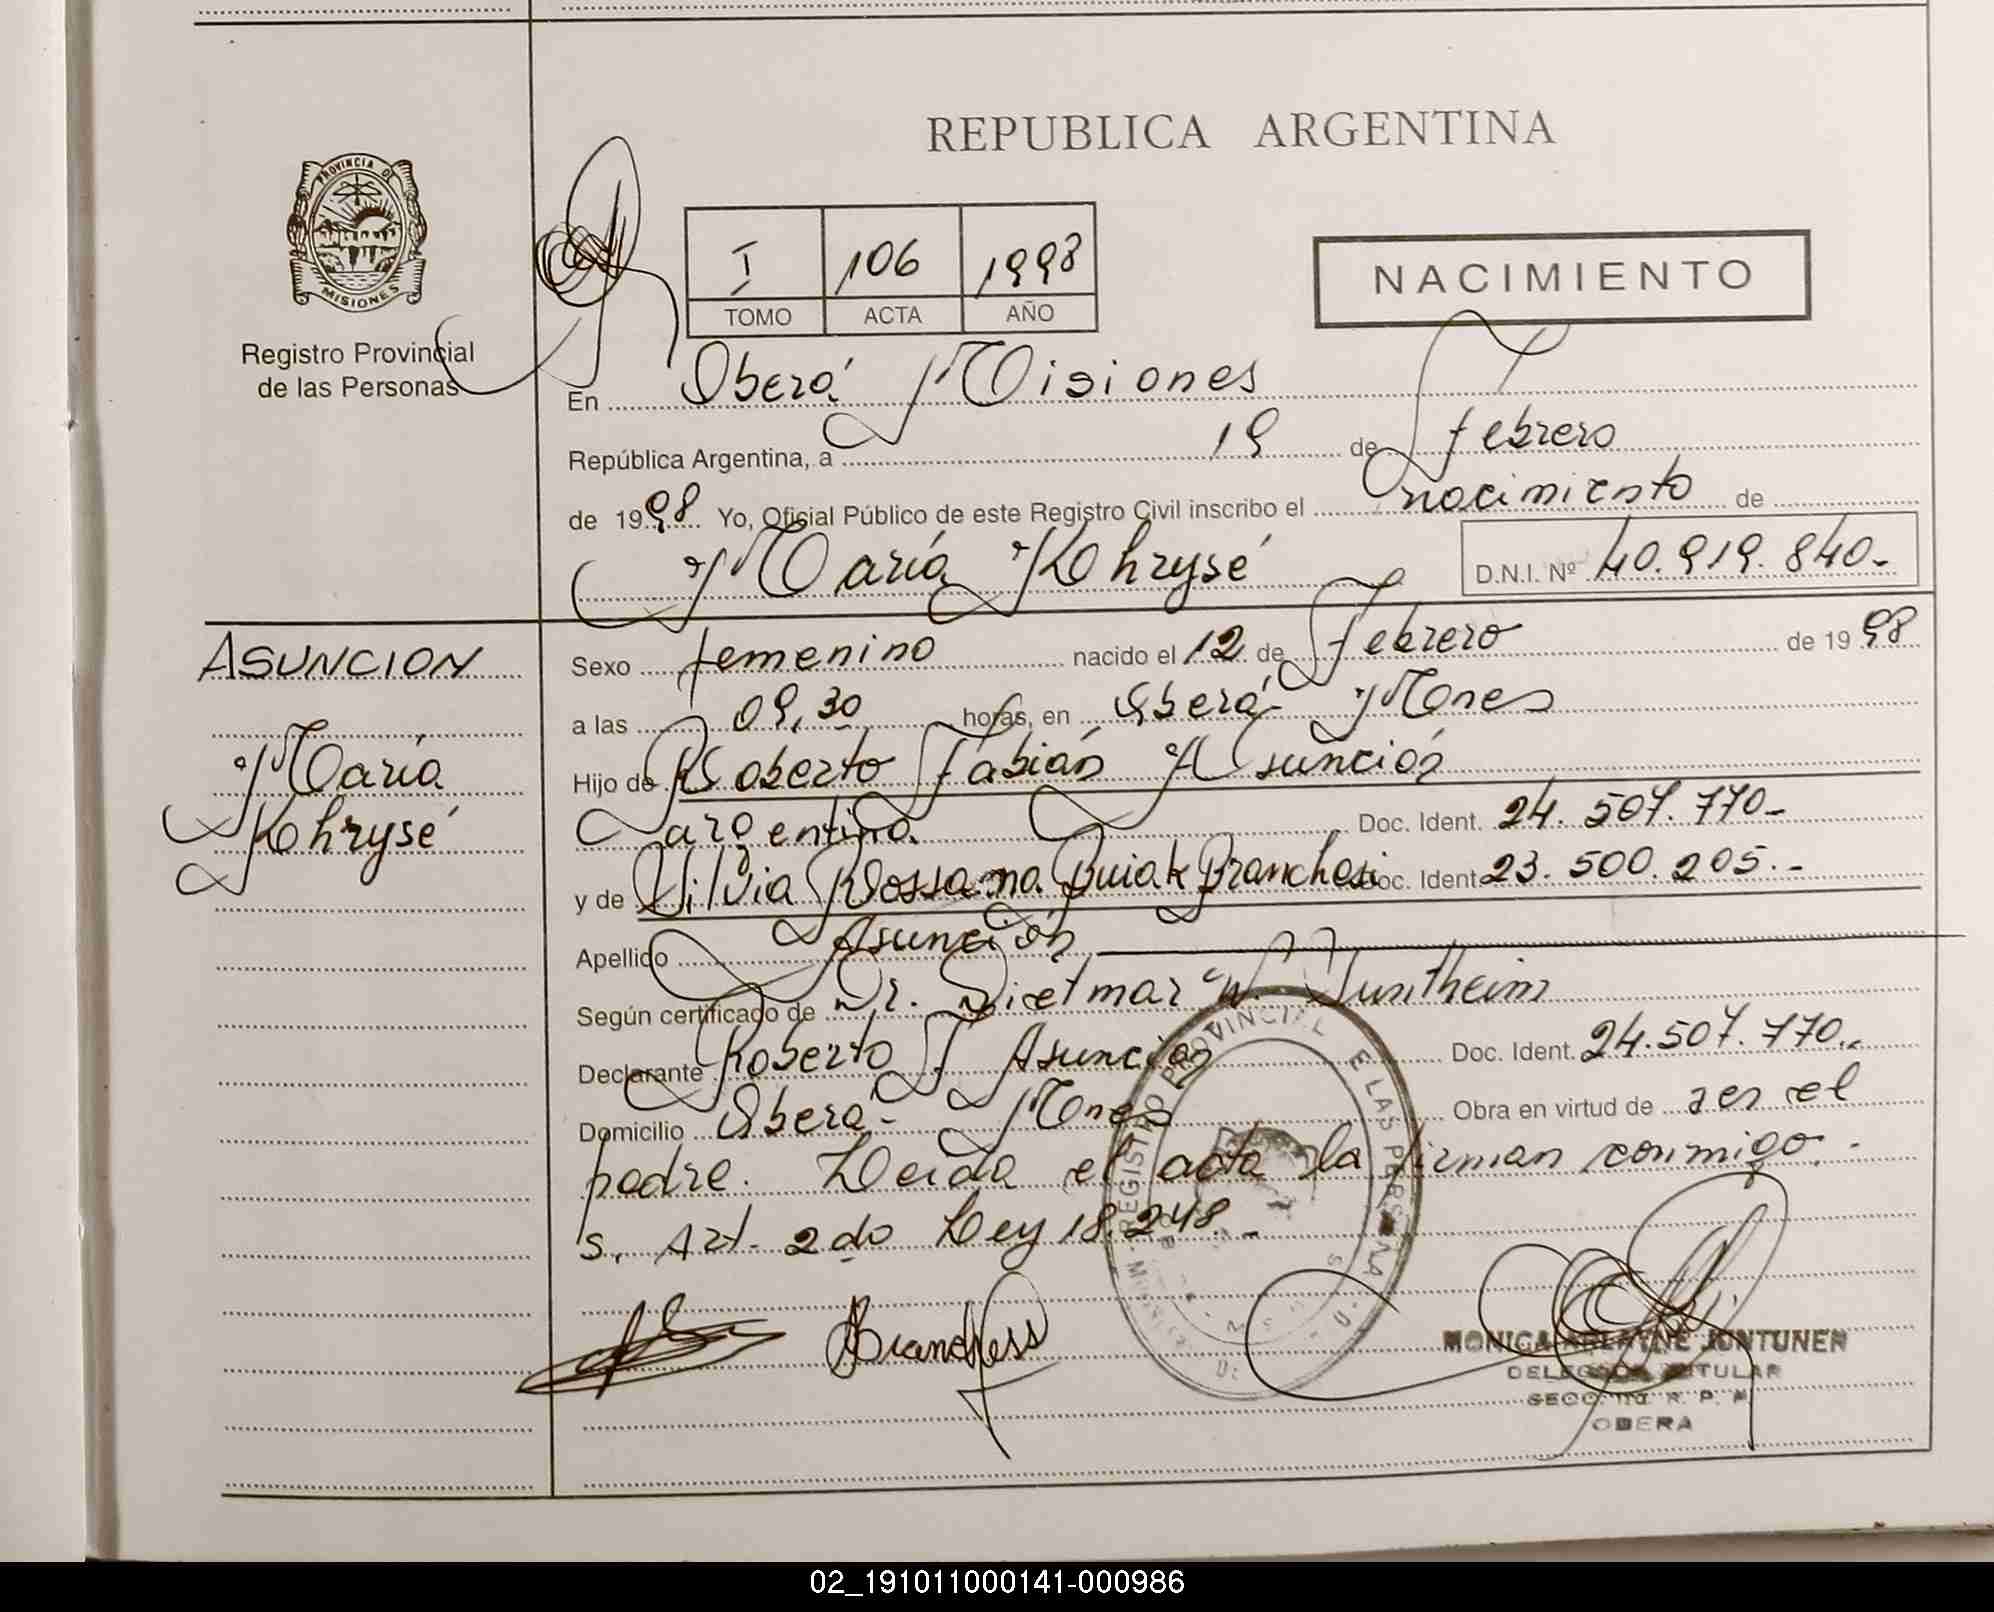 REPUBLICA ARGENTINA
PROVINCIA DE
MISIONES
Registro Provincial
de las Personas
I 106 1998
TOMO ACTA AÑO
NACIMIENTO
En Oberá Misiones
República Argentina, a 19 de febrero
de 1998 Yo, Oficial Público de este Registro Civil inscribo el nacimiento de
María Khrysé D.N.I. Nº 40.919.840.-
ASUNCION
María
Khrysé
Sexo femenino nacido el 12 de Febrero de 1998
a las 09,30 horas, en Oberá- Mones
Hijo de Roberto Fabián Asunción
argentino. Doc. Ident. 24.507.770-
y de Silvia Rossana Buiak Branchesi Doc. Ident 23.500.205.-
Apellido Asunción
Según certificado de Dr. Dietmar W.
Declarante Roberto F. Asunción Doc. Ident. 24.507.770.-
Domicilio Oberá- Mones Obra en virtud de ser el
padre. Leida el acta la firman conmigo.-
s. Art. 2do Ley 18.248.-
REGISTRO PROVINCIAL DE LAS PERSONAS
MONICA ARLAYNE JONTUNEN
DELEGADA TITULAR
SECC. R. P. P.
OBERA
02_191011000141-000986